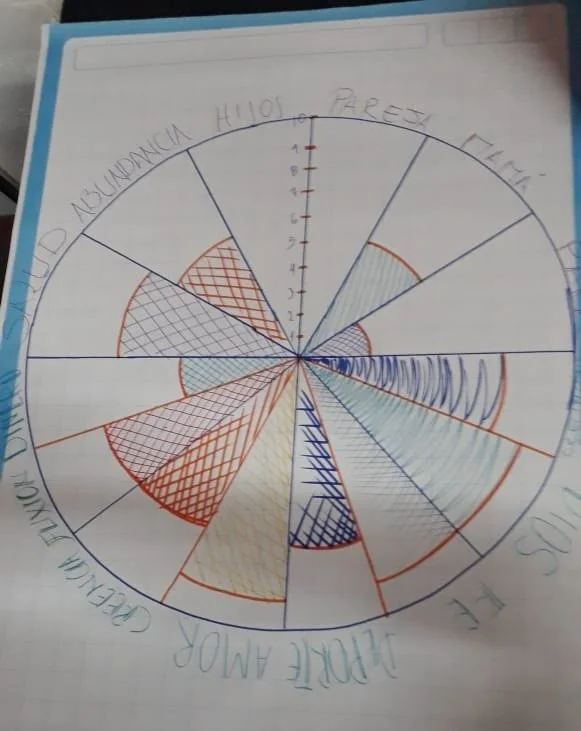 HIJOS
PAREJA
MAMÁ
DIOS
FE
DEPORTE
AMOR
CREENCIA
DINERO
SALUD
ABUNDANCIA
10
9
8
7
6
5
4
3
2
1